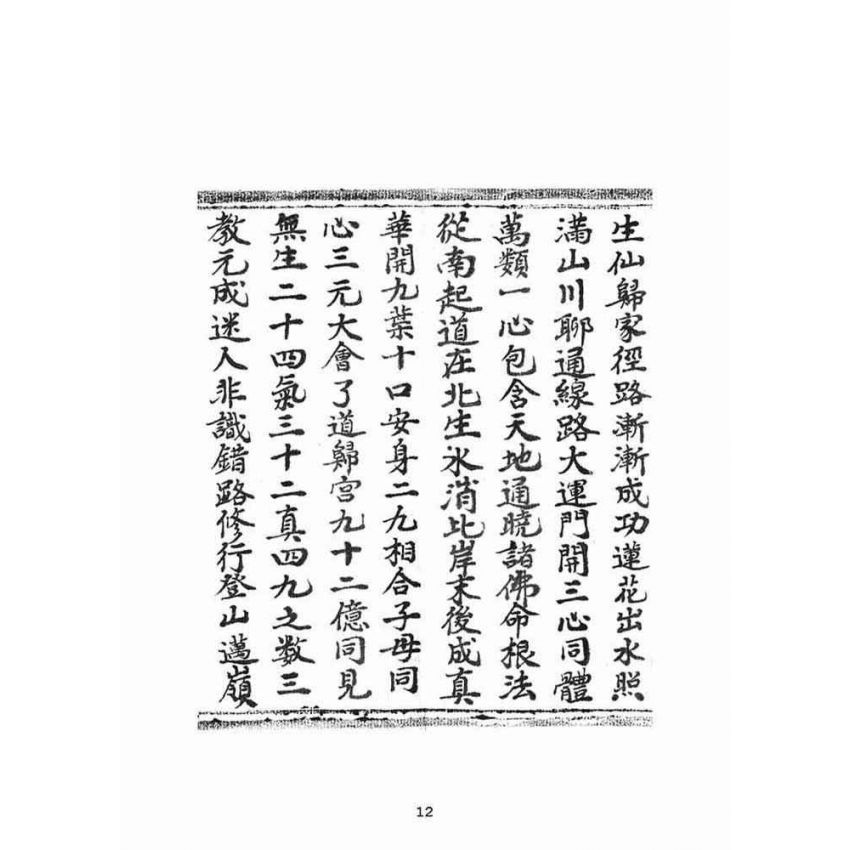 生仙歸家徑路漸漸成功蓮花出水照
滿山川聊通線路大運門開三心同體
萬類一心包含天地通曉諸佛命根法
從南起道在北生氷消比岸末後成真
華開九葉十口安身二九相合子母同
心三元大會了道歸宮九十二億同見
無生二十四氣三十二真四九之数三
教元成迷人非識錯路修行登山邁嶺
12